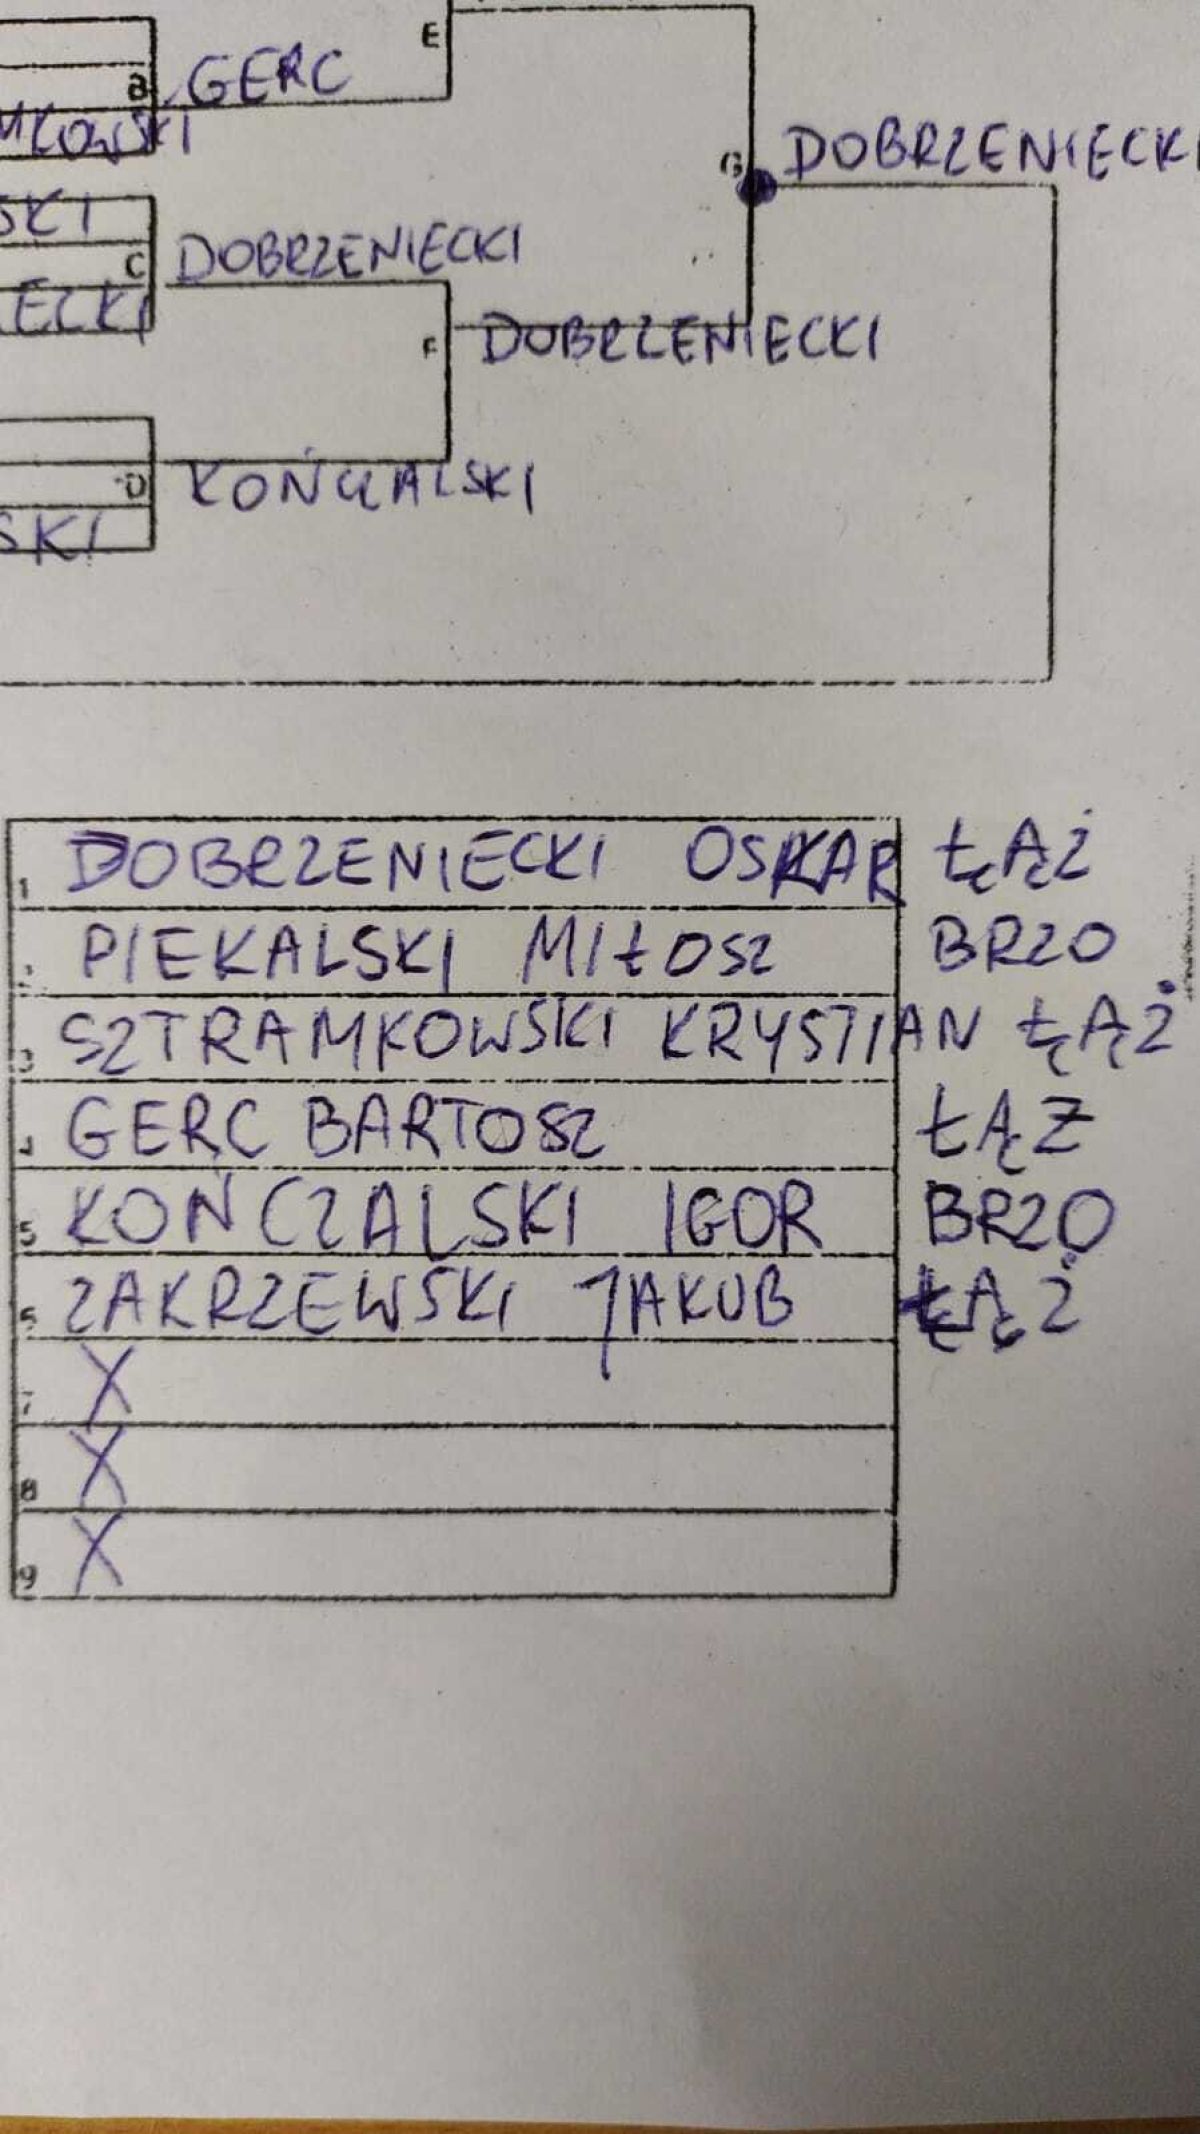 E
B GERC
MKOWSKI
G DOBRZENIECKI
SKI
C DOBRZENIECKI
ECKI
F DOBRZENIECKI
D KOŃCZALSKI
SKI
1 DOBRZENIECKI OSKAR ŁĄŻ
2 PIEKALSKI MIŁOSZ BRZO
3 SZTRAMKOWSKI KRYSTIAN ŁĄŻ
4 GERC BARTOSZ ŁĄZ
5 KOŃCZALSKI IGOR BRZO
6 ZAKRZEWSKI JAKUB ŁĄŻ
7 X
8 X
9 X